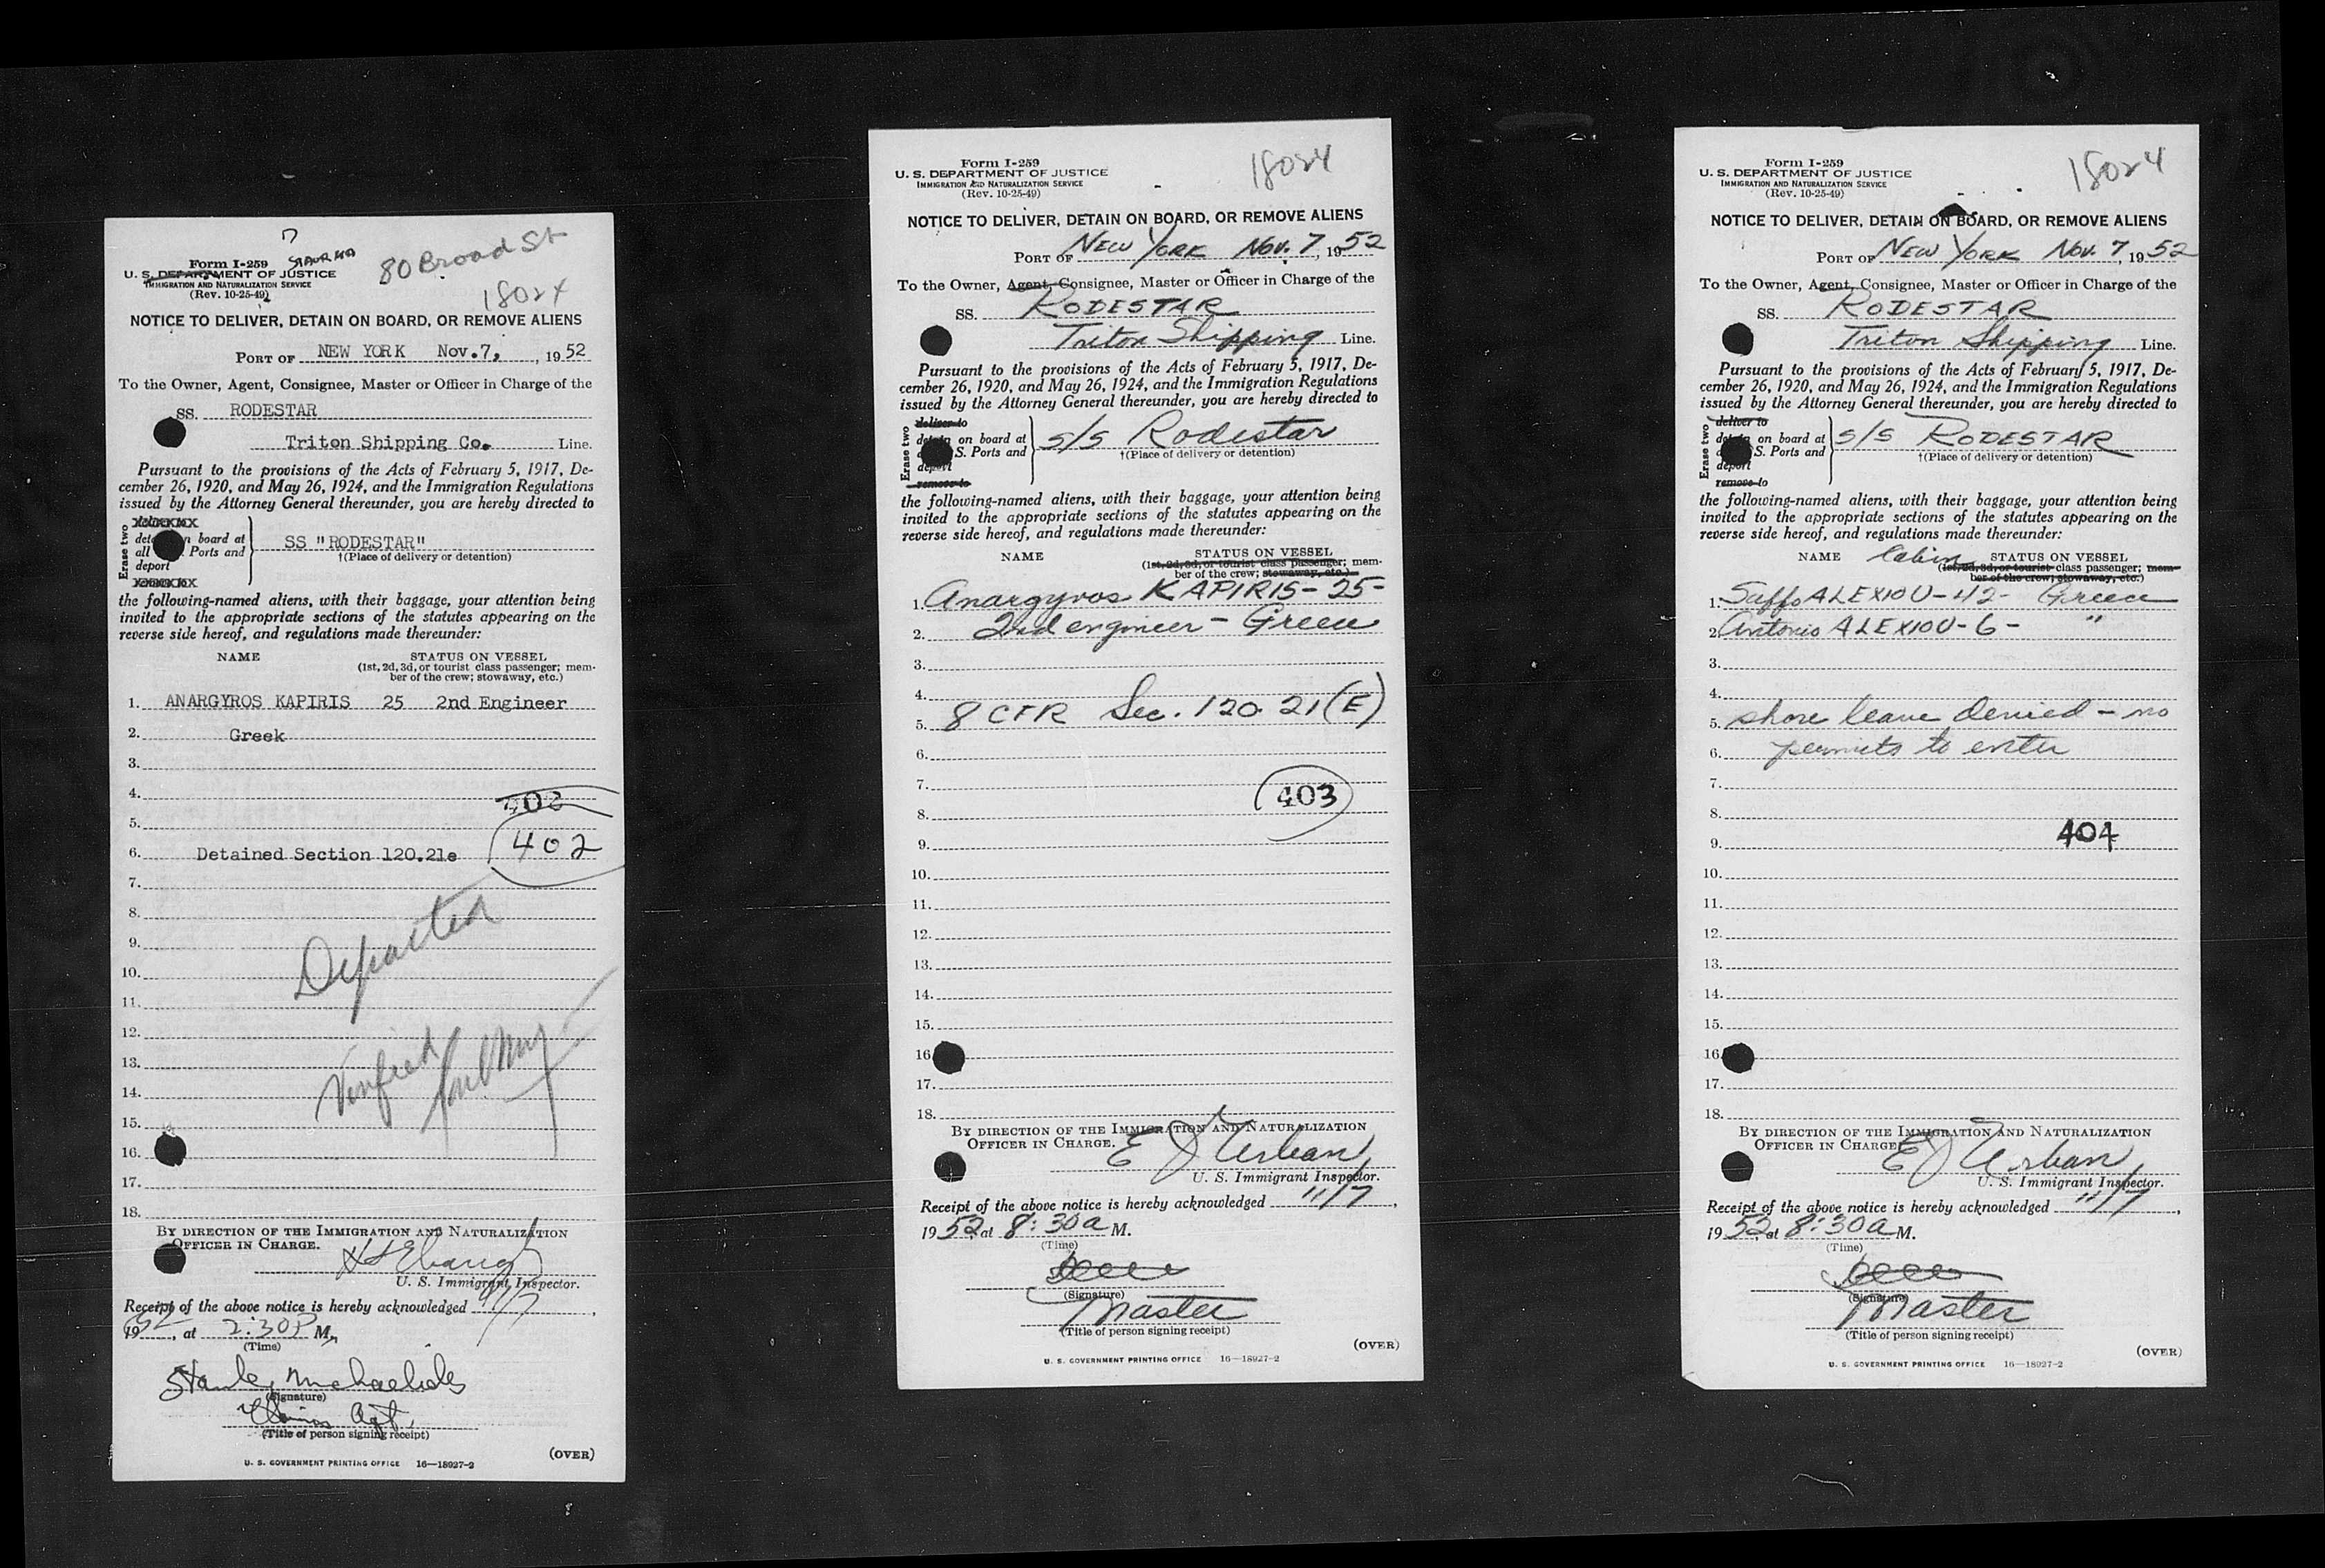 Form I-259
80 Broad St
U. S. DEPARTMENT OF JUSTICE
IMMIGRATION AND NATURALIZATION SERVICE
(Rev. 10-25-49)
18024
NOTICE TO DELIVER, DETAIN ON BOARD, OR REMOVE ALIENS
PORT OF NEW YORK Nov.7, , 1952
To the Owner, Agent, Consignee, Master or Officer in Charge of the
SS. RODESTAR
Triton Shipping Co. Line.
Pursuant to the provisions of the Acts of February 5, 1917, De-
cember 26, 1920, and May 26, 1924, and the Immigration Regulations
issued by the Attorney General thereunder, you are hereby directed to
Erase two
on board at
all Ports and
deport
SS "RODESTAR"
†(Place of delivery or detention)
the following-named aliens, with their baggage, your attention being
invited to the appropriate sections of the statutes appearing on the
reverse side hereof, and regulations made thereunder:
NAME STATUS ON VESSEL
(1st, 2d, 3d, or tourist class passenger; mem-
ber of the crew; stowaway, etc.)
1. ANARGYROS KAPIRIS 25 2nd Engineer
2. Greek
3.
4. 402
5.
6. Detained Section 120.21e 402
7.
8.
9. Departed
10.
11.
12.
13. Verified
14.
15.
16.
17.
18.
BY DIRECTION OF THE IMMIGRATION AND NATURALIZATION
OFFICER IN CHARGE.
U. S. Immigrant Inspector.
Receipt of the above notice is hereby acknowledged 11/7 ,
1952, at 2:30 P M.
(Time)
Stanley Michaelides
(Signature)
Agt.
(Title of person signing receipt)
(OVER)
U. S. GOVERNMENT PRINTING OFFICE 16—18927-2
Form I-259
18024
U. S. DEPARTMENT OF JUSTICE
IMMIGRATION AND NATURALIZATION SERVICE
(Rev. 10-25-49)
NOTICE TO DELIVER, DETAIN ON BOARD, OR REMOVE ALIENS
PORT OF NEW YORK NOV. 7, 1952
To the Owner, Agent, Consignee, Master or Officer in Charge of the
SS. RODESTAR
Triton Shipping Line.
Pursuant to the provisions of the Acts of February 5, 1917, De-
cember 26, 1920, and May 26, 1924, and the Immigration Regulations
issued by the Attorney General thereunder, you are hereby directed to
Erase two
deliver to
on board at
S. Ports and
deport
remove to
s/s Rodestar
†(Place of delivery or detention)
the following-named aliens, with their baggage, your attention being
invited to the appropriate sections of the statutes appearing on the
reverse side hereof, and regulations made thereunder:
NAME STATUS ON VESSEL
(1st, 2d, 3d, or tourist class passenger; mem-
ber of the crew; stowaway, etc.)
1. Anargyros KAPIRIS - 25 -
2. 2nd engineer - Greece
3.
4.
5. 8 CFR Sec. 120.21(E)
6.
7. 403
8.
9.
10.
11.
12.
13.
14.
15.
16.
17.
18.
BY DIRECTION OF THE IMMIGRATION AND NATURALIZATION
OFFICER IN CHARGE. E J Urban
U. S. Immigrant Inspector.
Receipt of the above notice is hereby acknowledged 11/7 ,
1952, at 8:30 a M.
(Time)
(Signature)
Master
(Title of person signing receipt)
(OVER)
U. S. GOVERNMENT PRINTING OFFICE 16—18927-2
Form I-259
18024
U. S. DEPARTMENT OF JUSTICE
IMMIGRATION AND NATURALIZATION SERVICE
(Rev. 10-25-49)
NOTICE TO DELIVER, DETAIN ON BOARD, OR REMOVE ALIENS
PORT OF NEW YORK NOV. 7, 1952
To the Owner, Agent, Consignee, Master or Officer in Charge of the
SS. RODESTAR
Triton Shipping Line.
Pursuant to the provisions of the Acts of February 5, 1917, De-
cember 26, 1920, and May 26, 1924, and the Immigration Regulations
issued by the Attorney General thereunder, you are hereby directed to
Erase two
deliver to
on board at
S. Ports and
deport
remove to
s/s RODESTAR
†(Place of delivery or detention)
the following-named aliens, with their baggage, your attention being
invited to the appropriate sections of the statutes appearing on the
reverse side hereof, and regulations made thereunder:
NAME Cabin STATUS ON VESSEL
(1st, 2d, 3d, or tourist class passenger; mem-
ber of the crew; stowaway, etc.)
1. Saffo ALEXIOU - 42 - Greece
2. Antonio ALEXIOU - 6 - "
3.
4.
5. shore leave denied - no
6. permits to enter
7.
8.
9. 404
10.
11.
12.
13.
14.
15.
16.
17.
18.
BY DIRECTION OF THE IMMIGRATION AND NATURALIZATION
OFFICER IN CHARGE. E J Urban
U. S. Immigrant Inspector.
Receipt of the above notice is hereby acknowledged 11/7 ,
1952, at 8:30 a M.
(Time)
(Signature)
Master
(Title of person signing receipt)
(OVER)
U. S. GOVERNMENT PRINTING OFFICE 16—18927-2